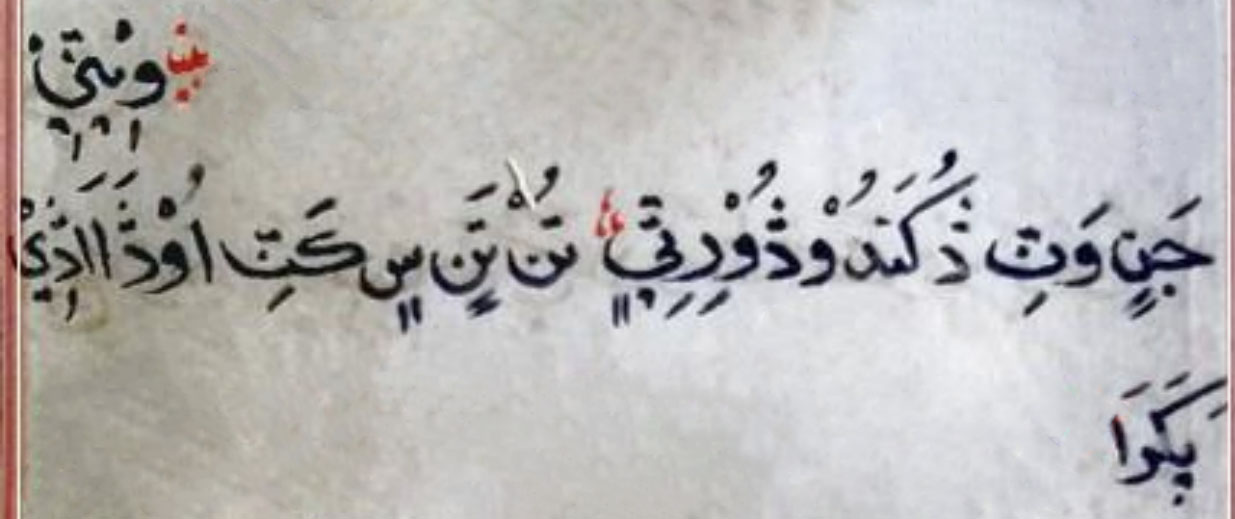 وِنْتِيْ
جَنٍ وَتِ ذَ كَندُ وْذُوْرِتِيٍ تُنْ تَنٍ سٍ كَتِ اوْذَ ااَدِّيْ
بَكَوَا